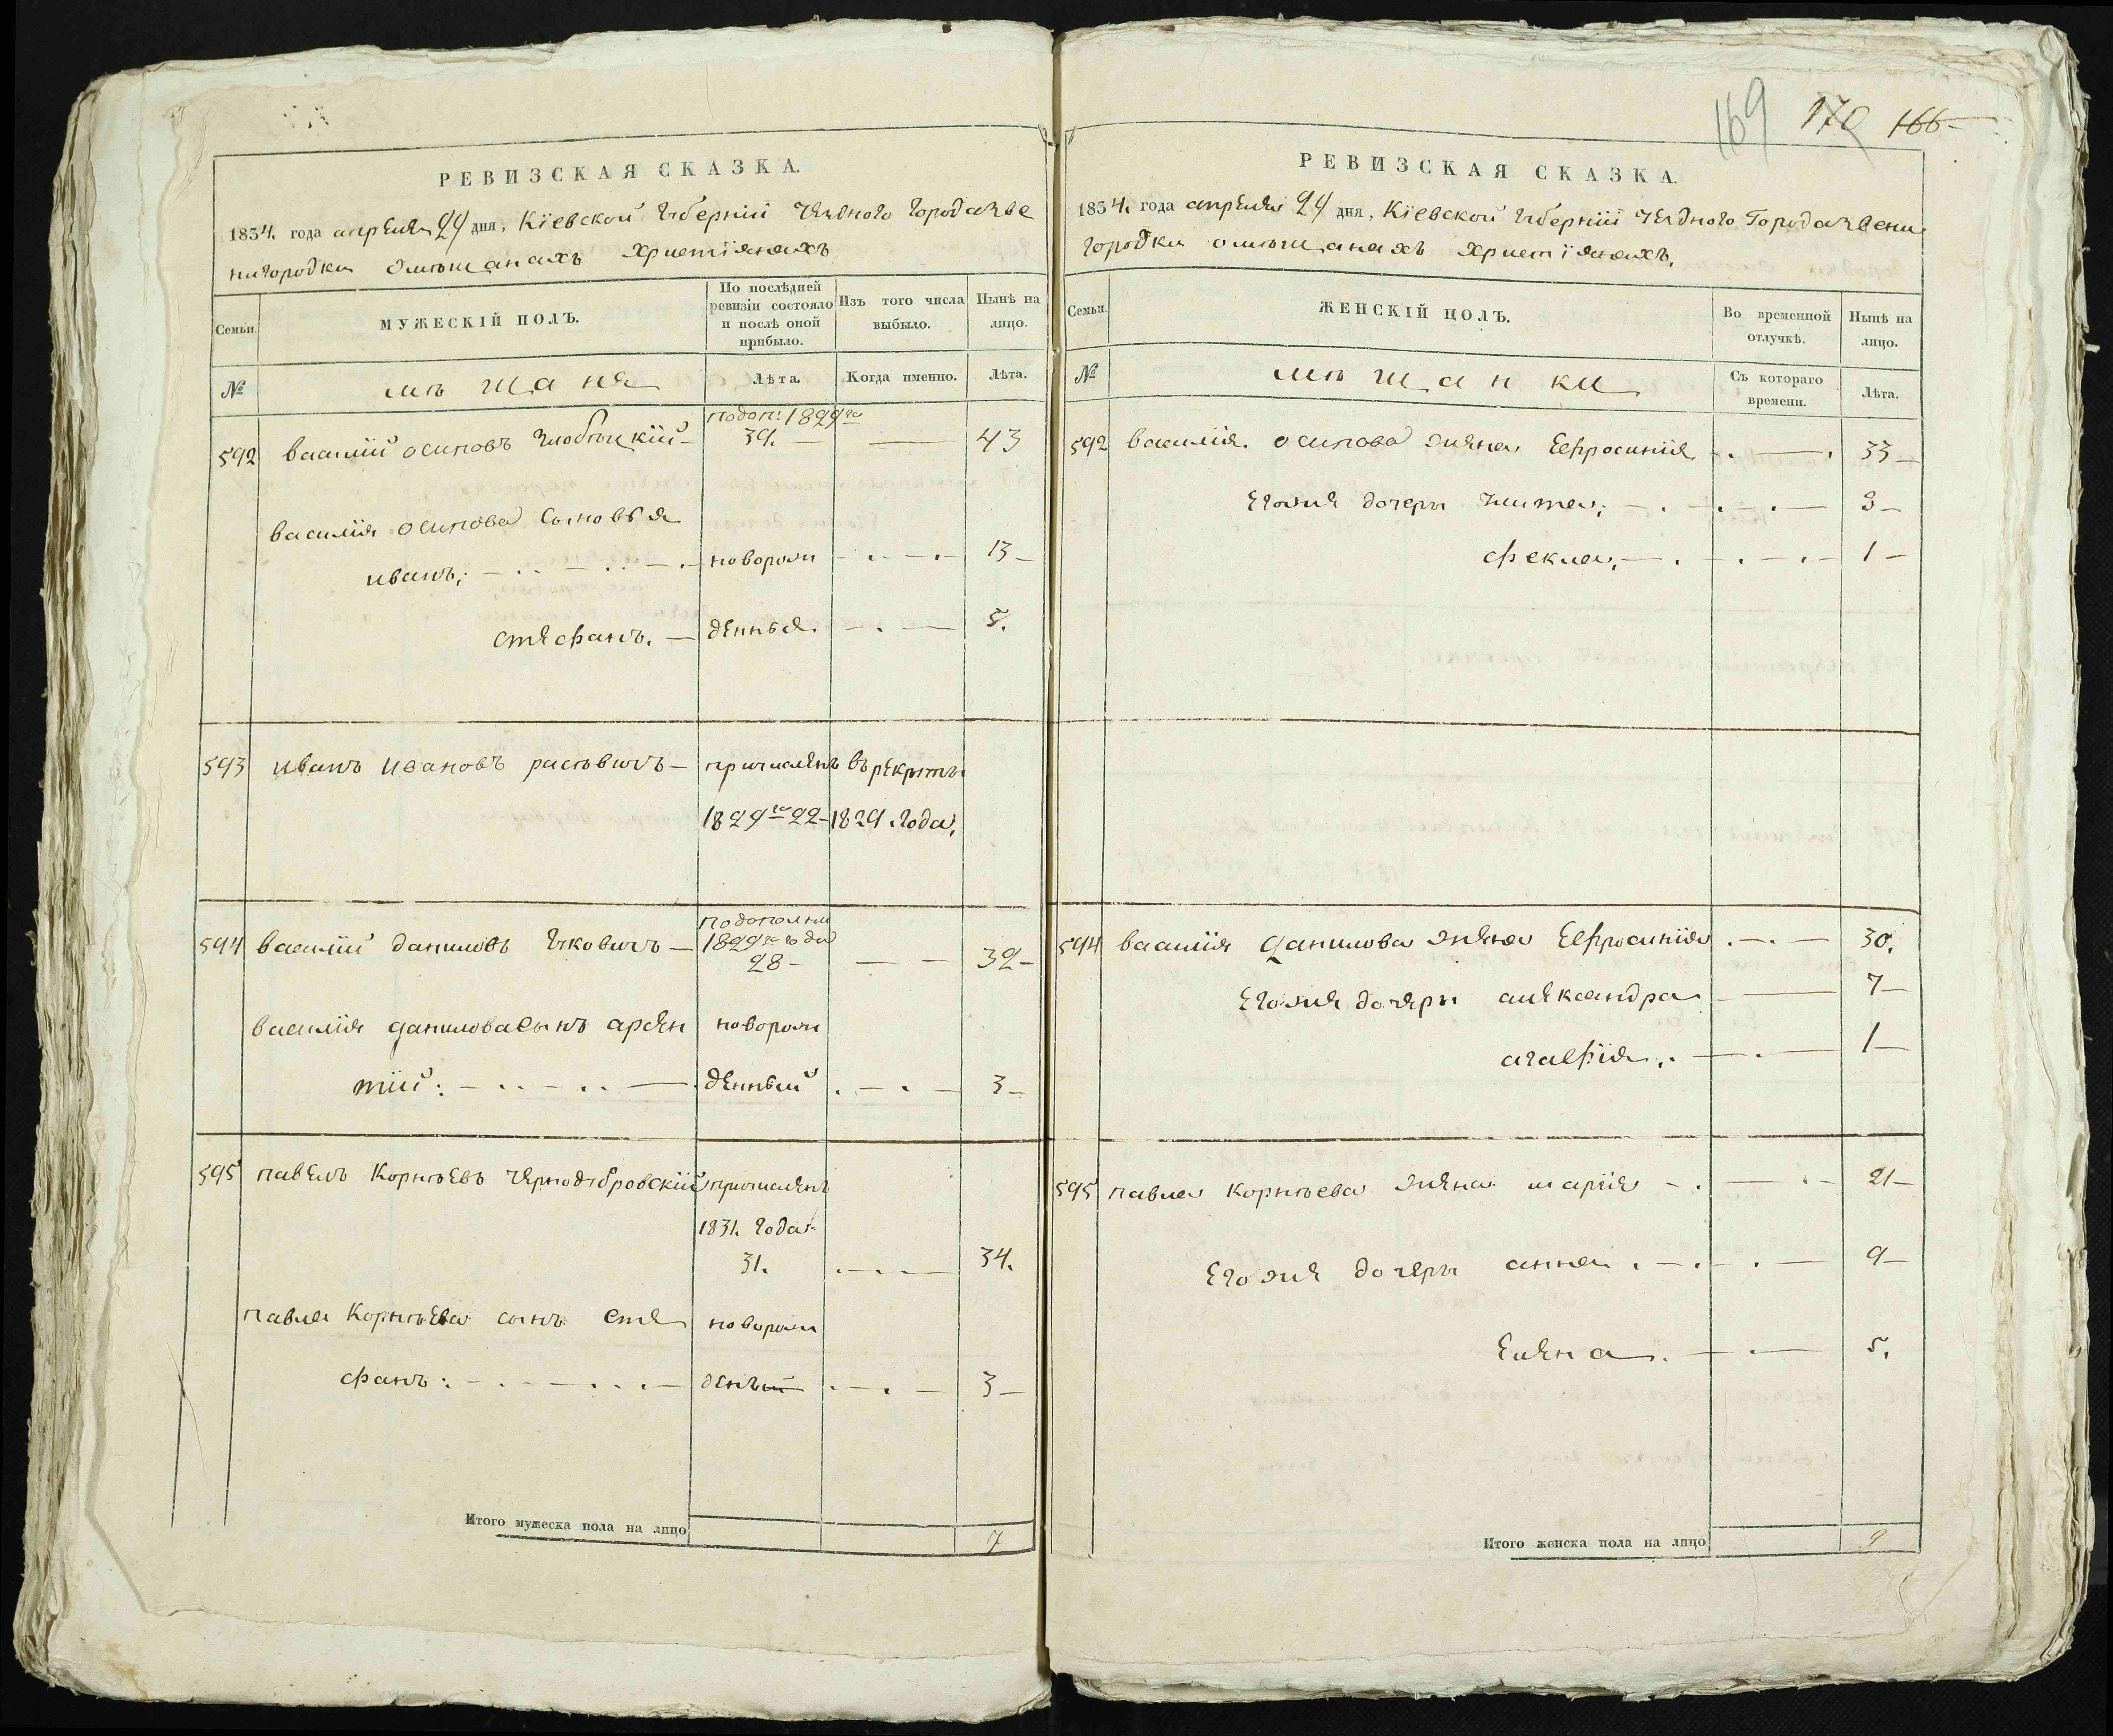 169 170 166
РЕВИЗСКАЯ СКАЗКА.
1834. года апреля 24 дня, Кіевской губерніи уездного города Зве
нигородки омѣщанахъ христіянахъ
Семьи.
МУЖЕСКІЙ ПОЛЪ.
По послѣдней ревизіи состояло и послѣ оной прибыло.
Изъ того числа выбыло.
Нынѣ на лицо.
№
мѣщаня
Лѣта.
Когда именно.
Лѣта.
подоп: 1829го
592 василій осиповъ 39. — 43
василія осипова сыновья
иванъ; новорож 13
стефанъ. денныя. 5.
593 иванъ ивановъ причисленъ в рекруты
1829го 22 1829 года,
подополни
594 василій даниловъ 1829го года
28 — 32
василія данилова сынъ арсен новорож
тій: денный 3
595 павелъ Корнѣевъ чернодубровскій причисленъ
1831. года
31. 34.
павла Корнѣева сынъ сте новорож
фанъ: деный 3
Итого мужеска пола на лицо 7
РЕВИЗСКАЯ СКАЗКА.
1834. года апреля 24 дня, Кіевской губерніи уездного Города Звени
городки омѣщанахъ христіянахъ.
Семьи.
ЖЕНСКІЙ ПОЛЪ.
Во временной отлучкѣ.
Нынѣ на лицо.
№
мѣщанки
Съ котораго времени.
Лѣта.
592 василія осипова жена Ефросинія 33
Егоже дочери 3
фекла, 1
594 василія данилова жена Ефросинія 30.
Егоже дочери александра 7
агафія. 1
595 павла Корнѣева жена марія 21
Егоже дочери анна 9
Елена 5.
Итого женска пола на лицо 9